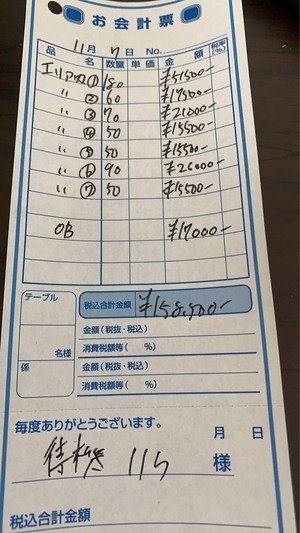 お会計票
11月 7日 No.
品 名 数量 単価 金 額 税率(%)
エリアカ① 180 ¥51500-
〃 ② 60 ¥17500-
〃 ③ 70 ¥21000-
〃 ④ 50 ¥15500-
〃 ⑤ 50 ¥15500-
〃 ⑥ 90 ¥26000-
〃 ⑦ 50 ¥15500-
OB ¥17000-
テーブル 税込合計金額 ¥158,500-
金額(税抜・税込)
名様 消費税額等( %)
係 金額(税抜・税込)
消費税額等( %)
毎度ありがとうございます。
月 日
待機 115 様
税込合計金額